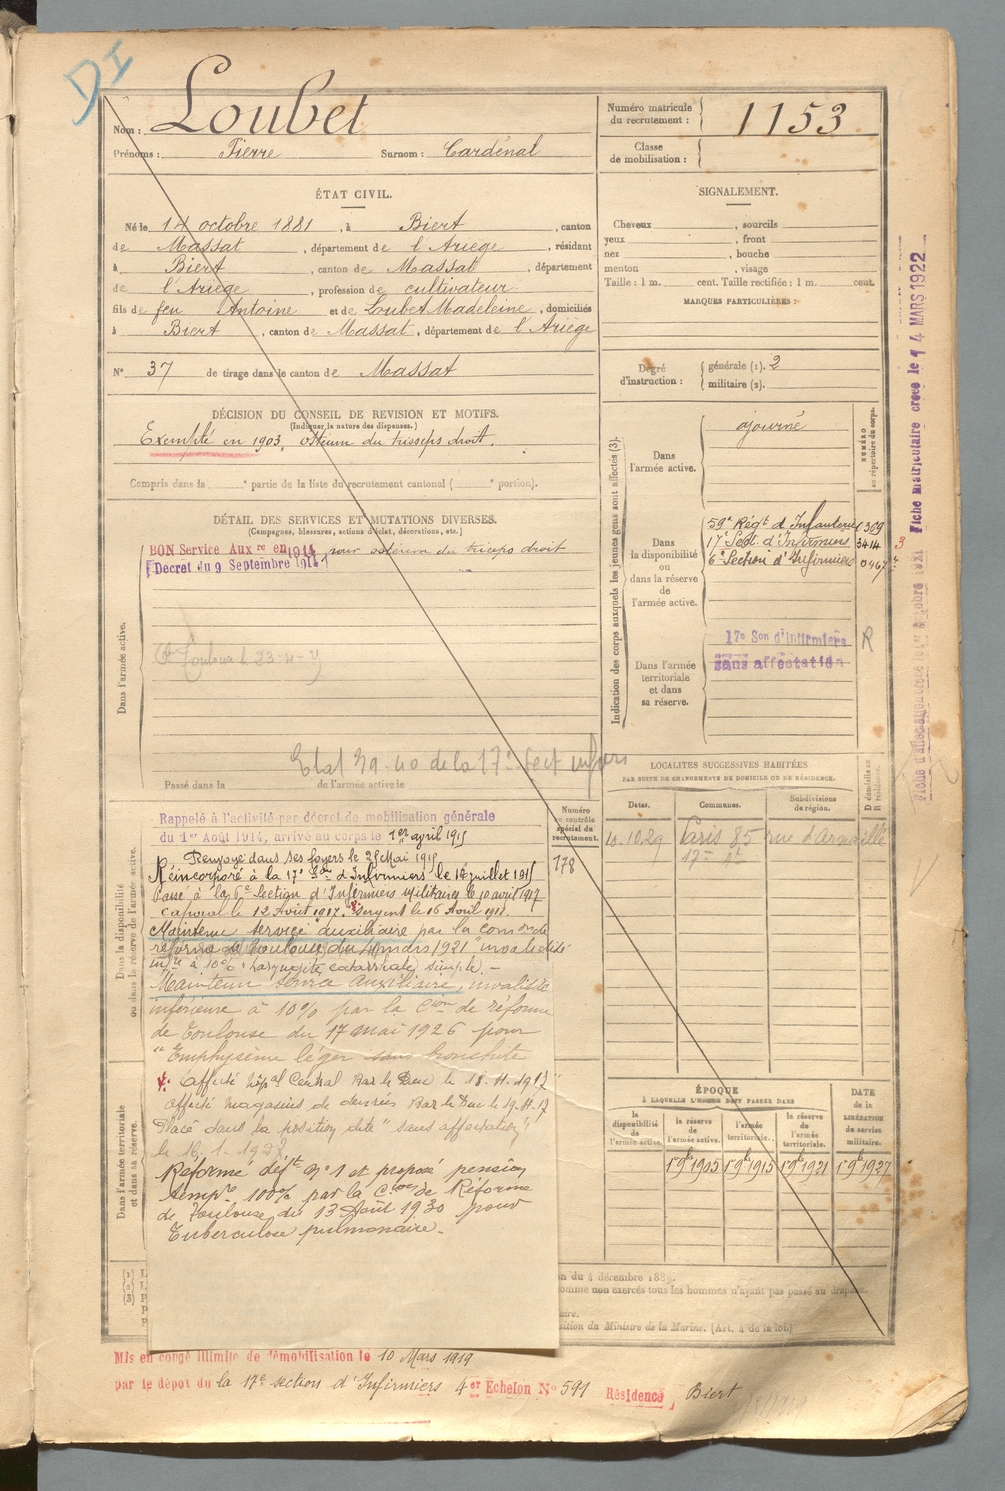 DI
Nom : Loubet
Prénoms : Pierre Surnom : Cardénal
Numéro matricule du recrutement : 1153
Classe de mobilisation :
ÉTAT CIVIL.
Né le 14 octobre 1881, à Biert, canton
de Massat, département de l'Ariège, résidant
à Biert, canton de Massat, département
de l'Ariège, profession de cultivateur
fils de feu Antoine et de Loubet Madeleine, domiciliés
à Biert, canton de Massat, département de l'Ariège
N° 37 de tirage dans le canton de Massat
SIGNALEMENT.
Cheveux , sourcils
yeux , front
nez , bouche
menton , visage
Taille : 1 m. cent. Taille rectifiée : 1 m. cent.
MARQUES PARTICULIÈRES :
Degré d'instruction : générale (1). 2
militaire (2).
DÉCISION DU CONSEIL DE REVISION ET MOTIFS.
(Indiquer la nature des dispenses.)
Exempté en 1903, ostéum du trisseps droit.
Compris dans la e partie de la liste du recrutement cantonal ( e portion).
DÉTAIL DES SERVICES ET MUTATIONS DIVERSES.
(Campagnes, blessures, actions d'éclat, décorations, etc.)
Dans l'armée active.
BON Service Aux re en 1914 pour ostéum du triceps droit
Décret du 9 Septembre 1914
Etat 39-40 de la 17e Sect infirs
Passé dans la de l'armée active le
Indication des corps auxquels les jeunes gens sont affectés (3).
NUMÉRO au répertoire du corps.
Dans l'armée active.
ajourné
Dans la disponibilité ou dans la réserve de l'armée active.
59e Régt d'Infanterie 1309
17e Sect. d'Infirmiers 3414 3
6e Section d'Infirmiers 0467
Dans l'armée territoriale et dans sa réserve.
17e Son d'Infirmiers R
sans affectation
Fiche matriculaire créée le 14 MARS 1922
LOCALITÉS SUCCESSIVES HABITÉES
PAR SUITE DE CHANGEMENTS DE DOMICILE OU DE RÉSIDENCE.
D domicile ou R résidence.
Dates. Communes. Subdivisions de région.
10.10.29 Paris 85 rue d'Armaillé
17e
Numéro au contrôle spécial du recrutement.
178
Dans la disponibilité ou dans la réserve de l'armée active.
Rappelé à l'activité par décret de mobilisation générale
du 1er Août 1914, arrivé au corps le 1er avril 1915
Renvoyé dans ses foyers le 25 Mai 1915
Réincorporé à la 17e Son d'Infirmiers le 14 juillet 1915
Passé à la 6e Section d'Infirmiers Militaires le 10 avril 1917
Caporal le 12 Août 1917. Sergent le 16 Août 1918.
Maintenu service auxiliaire par la comon de
réforme de Toulouse du 4 mars 1921 invalidité
infre à 10% : Laryngite catarrhale simple.-
Maintenu service auxiliaire, invalidité
inférieure à 10% par la Con de réforme
de Toulouse du 17 mai 1926 pour
"Emphysème léger sans bronchite
Affecté hôpal Central Bar le Duc le 18-11-1917
Affecté magasins de denrées Bar le Duc le 19-11-17
Placé dans la position dite "sans affectation"
Réformé déft n°1 et proposé pension
tempre 100% par la Cion de Réforme
de Toulouse du 13 Août 1930 pour
Tuberculose pulmonaire.-
Dans l'armée territoriale et dans sa réserve.
ÉPOQUE
À LAQUELLE L'HOMME DOIT PASSER DANS
DATE de la LIBÉRATION du service militaire.
la disponibilité de l'armée active. la réserve de l'armée active. l'armée territoriale. la réserve de l'armée territoriale.
1 9bre 1905 1 9bre 1915 1 9bre 1921 1 9bre 1927
n du 4 décembre 1889.
omme non exercés tous les hommes n'ayant pas passé au drapeau.
ition du Ministre de la Marine. (Art. 4 de la loi.)
Mis en congé illimité de démobilisation le 10 Mars 1919
par le dépôt du la 17e section d'Infirmiers 4er Echelon N° 591 Résidence Biert